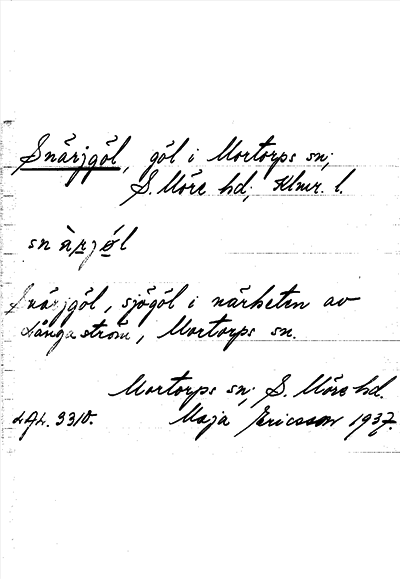 Snärjgöl, göl i Mortorps sn;
S. Möre hd; Klmr. l.
snärjöl
Snärjgöl, sjögöl i närheten av
Långaström, Mortorps sn.
Mortorps sn; S. Möre hd.
Maja Ericsson 1937.